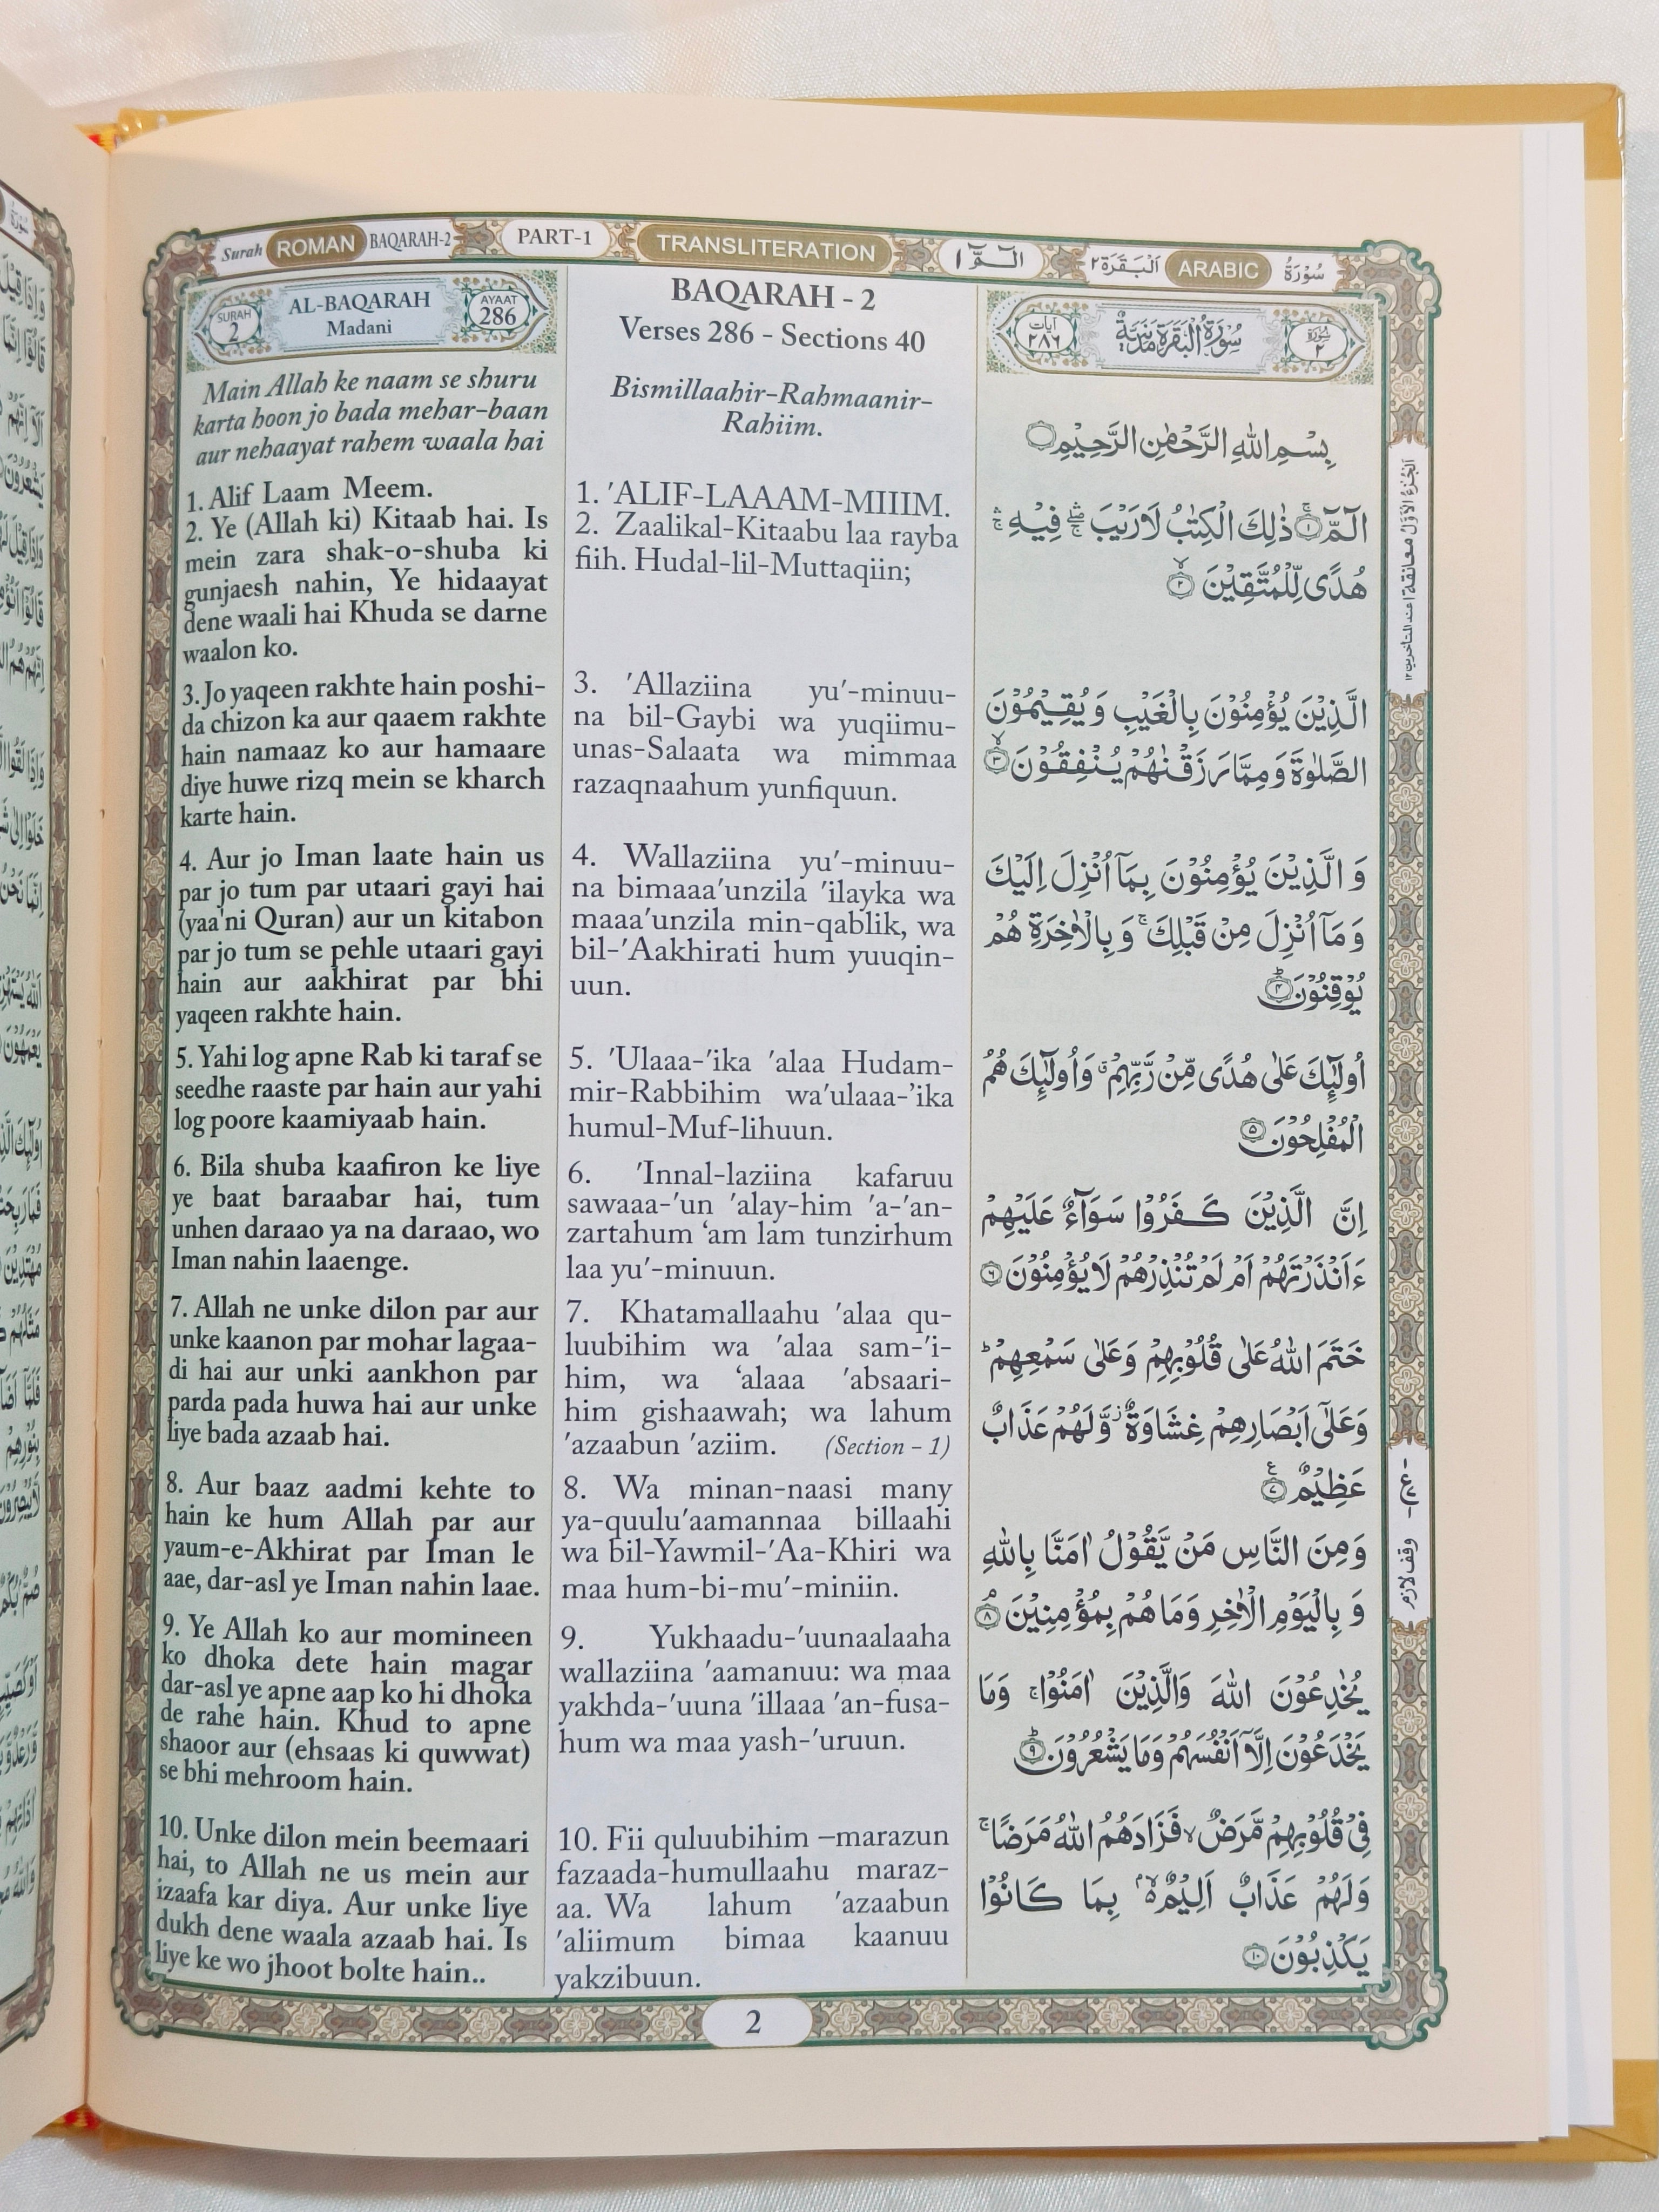 Surah ROMAN BAQARAH-2 PART-1 TRANSLITERATION الٓمّٓ ١ اَلْبَقَرَة ٢ ARABIC سُوْرَةُ
SURAH 2
AL-BAQARAH
Madani
AYAAT 286
Main Allah ke naam se shuru
karta hoon jo bada mehar-baan
aur nehaayat rahem waala hai
1. Alif Laam Meem.
2. Ye (Allah ki) Kitaab hai. Is
mein zara shak-o-shuba ki
gunjaesh nahin, Ye hidaayat
dene waali hai Khuda se darne
waalon ko.
3. Jo yaqeen rakhte hain poshi-
da chizon ka aur qaaem rakhte
hain namaaz ko aur hamaare
diye huwe rizq mein se kharch
karte hain.
4. Aur jo Iman laate hain us
par jo tum par utaari gayi hai
(yaa'ni Quran) aur un kitabon
par jo tum se pehle utaari gayi
hain aur aakhirat par bhi
yaqeen rakhte hain.
5. Yahi log apne Rab ki taraf se
seedhe raaste par hain aur yahi
log poore kaamiyaab hain.
6. Bila shuba kaafiron ke liye
ye baat baraabar hai, tum
unhen daraao ya na daraao, wo
Iman nahin laaenge.
7. Allah ne unke dilon par aur
unke kaanon par mohar lagaa-
di hai aur unki aankhon par
parda pada huwa hai aur unke
liye bada azaab hai.
8. Aur baaz aadmi kehte to
hain ke hum Allah par aur
yaum-e-Akhirat par Iman le
aae, dar-asl ye Iman nahin laae.
9. Ye Allah ko aur momineen
ko dhoka dete hain magar
dar-asl ye apne aap ko hi dhoka
de rahe hain. Khud to apne
shaoor aur (ehsaas ki quwwat)
se bhi mehroom hain.
10. Unke dilon mein beemaari
hai, to Allah ne us mein aur
izaafa kar diya. Aur unke liye
dukh dene waala azaab hai. Is
liye ke wo jhoot bolte hain..
BAQARAH - 2
Verses 286 - Sections 40
Bismillaahir-Rahmaanir-
Rahiim.
1. 'ALIF-LAAAM-MIIIM.
2. Zaalikal-Kitaabu laa rayba
fiih. Hudal-lil-Muttaqiin;
3. 'Allaziina yu'-minuu-
na bil-Gaybi wa yuqiimu-
unas-Salaata wa mimmaa
razaqnaahum yunfiquun.
4. Wallaziina yu'-minuu-
na bimaaa'unzila 'ilayka wa
maaa'unzila min-qablik, wa
bil-'Aakhirati hum yuuqin-
uun.
5. 'Ulaaa-'ika 'alaa Hudam-
mir-Rabbihim wa'ulaaa-'ika
humul-Muf-lihuun.
6. 'Innal-laziina kafaruu
sawaaa-'un 'alay-him 'a-'an-
zartahum ‘am lam tunzirhum
laa yu'-minuun.
7. Khatamallaahu 'alaa qu-
luubihim wa 'alaa sam-'i-
him, wa ‘alaaa 'absaari-
him gishaawah; wa lahum
'azaabun 'aziim. (Section - 1)
8. Wa minan-naasi many
ya-quulu'aamannaa billaahi
wa bil-Yawmil-'Aa-Khiri wa
maa hum-bi-mu'-miniin.
9. Yukhaadu-'uunaalaaha
wallaziina 'aamanuu: wa maa
yakhda-'uuna 'illaaa 'an-fusa-
hum wa maa yash-'uruun.
10. Fii quluubihim –marazun
fazaada-humullaahu maraz-
aa. Wa lahum 'azaabun
'aliimum bimaa kaanuu
yakzibuun.
سُوْرَةُ الْبَقَرَةِ مَدَنِيَّةٌ
سورة ٢
آيات ٢٨٦
بِسْمِ اللهِ الرَّحْمٰنِ الرَّحِيْمِ
الٓمّٓ ۚ ١ ذٰلِكَ الْكِتٰبُ لَا رَيْبَ ۛۖ فِيْهِ ۛۚ
هُدًى لِّلْمُتَّقِيْنَ ۙ ٢
الَّذِيْنَ يُؤْمِنُوْنَ بِالْغَيْبِ وَ يُقِيْمُوْنَ
الصَّلٰوةَ وَمِمَّا رَزَقْنٰهُمْ يُنْفِقُوْنَ ۙ ٣
وَ الَّذِيْنَ يُؤْمِنُوْنَ بِمَآ اُنْزِلَ اِلَيْكَ
وَ مَآ اُنْزِلَ مِنْ قَبْلِكَ ۚ وَ بِالْاٰخِرَةِ هُمْ
يُوْقِنُوْنَ ؕ ٤
اُولٰٓئِكَ عَلٰى هُدًى مِّنْ رَّبِّهِمْ ۗ وَاُولٰٓئِكَ هُمُ
الْمُفْلِحُوْنَ ٥
اِنَّ الَّذِيْنَ كَفَرُوْا سَوَآءٌ عَلَيْهِمْ
ءَاَنْذَرْتَهُمْ اَمْ لَمْ تُنْذِرْهُمْ لَا يُؤْمِنُوْنَ ٦
خَتَمَ اللهُ عَلٰى قُلُوْبِهِمْ وَعَلٰى سَمْعِهِمْ ؕ
وَعَلٰٓى اَبْصَارِهِمْ غِشَاوَةٌ ۫ وَّلَهُمْ عَذَابٌ
عَظِيْمٌ ۧ ٧
وَمِنَ النَّاسِ مَنْ يَّقُوْلُ اٰمَنَّا بِاللهِ
وَ بِالْيَوْمِ الْاٰخِرِ وَمَا هُمْ بِمُؤْمِنِيْنَ ۘ ٨
يُخٰدِعُوْنَ اللهَ وَالَّذِيْنَ اٰمَنُوْا ۚ وَمَا
يَخْدَعُوْنَ اِلَّآ اَنْفُسَهُمْ وَمَا يَشْعُرُوْنَ ؕ ٩
فِيْ قُلُوْبِهِمْ مَّرَضٌ ۙ فَزَادَهُمُ اللهُ مَرَضًا ۚ
وَلَهُمْ عَذَابٌ اَلِيْمٌۢ ۙ۬ بِمَا كَانُوْا
يَكْذِبُوْنَ ١٠
الجزء الاول معانقة ١ عند المتاخرين ١٢
وقف لازم
2